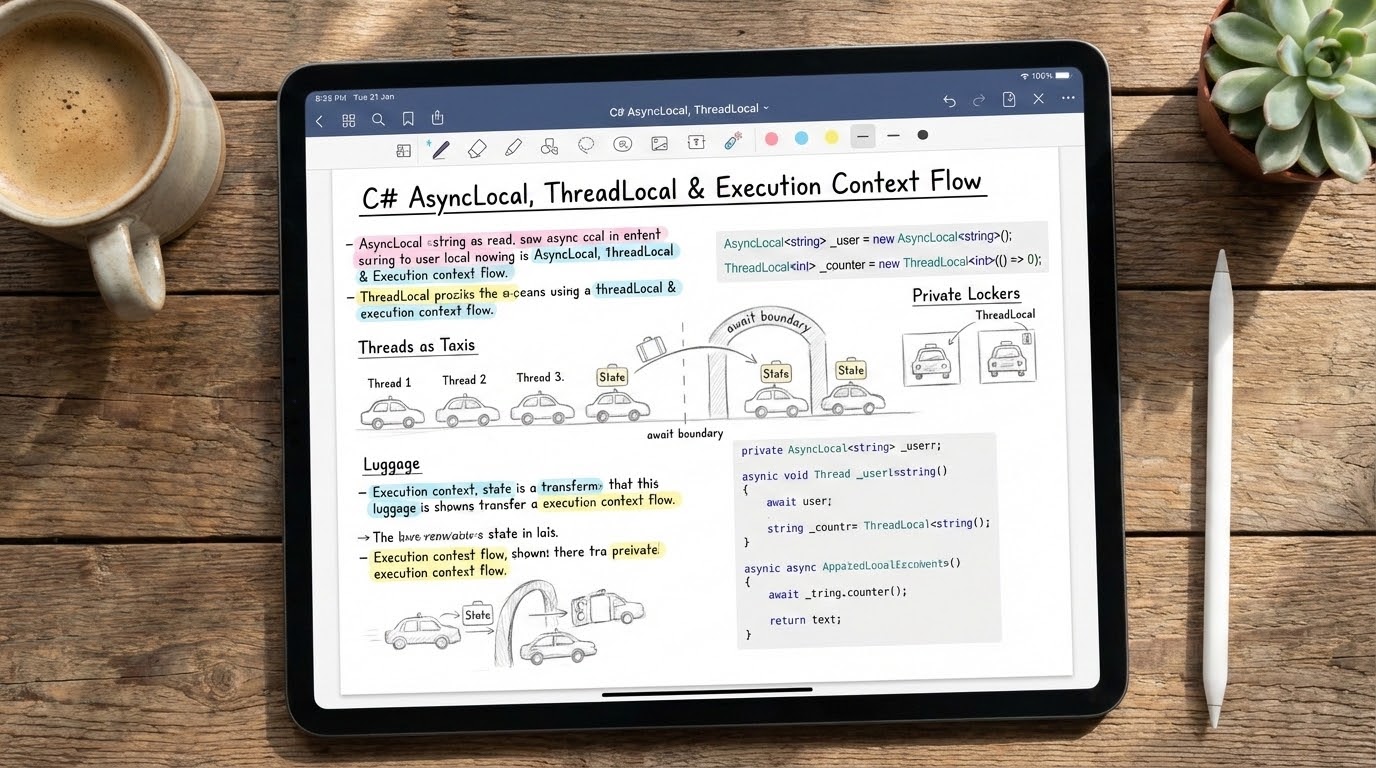 8:39 PM Tue 21 Jan
100%
C# AsyncLocal, ThreadLocal
C# AsyncLocal, ThreadLocal & Execution Context Flow
- AsyncLocal string as read. saw async ccal in entent
suring to user local nowing is AsyncLocal, ThreadLocal
& Execution context flow.
- ThreadLocal proziks the a-ceans using a threadLocal &
execution context flow.
AsyncLocal<string> _user = new AsyncLocal<string>();
ThreadLocal<int> _counter = new ThreadLocal<int>(() => 0);
Private Lockers
ThreadLocal
Threads as Taxis
Thread 1
Thread 2
Thread 3.
State
await boundary
Stafs
State
await boundary
Luggage
- Execution context, state is a transferm that this
luggage is showns transfer a execution context flow.
→ The state in lais.
- Execution contest flow, shown: there tra preivate
execution context flow.
State
private AsyncLocal<string> _userr;
asynic void Thread _userl<string()
{
await user;
string _countr= ThreadLocal<string();
}
asynic async ()
{
await _tring.counter();
return text;
}